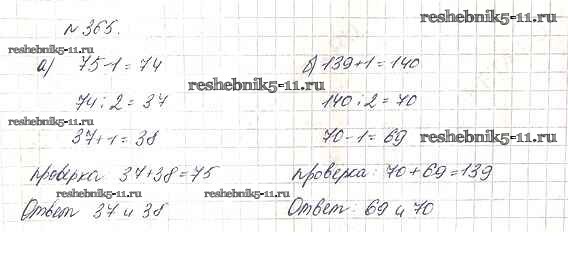 № 365.
reshebnik5-11.ru
reshebnik5-11.ru
а) 75-1 = 74
б) 139+1 = 140
reshebnik5-11.ru
74 : 2 = 37
140 : 2 = 70
reshebnik5-11.ru
37+1 = 38
70-1 = 69
reshebnik5-11.ru
проверка 37+38 = 75
проверка: 70+69 = 139
reshebnik5-11.ru
reshebnik5-11.ru
Ответ 37 и 38
Ответ: 69 и 70